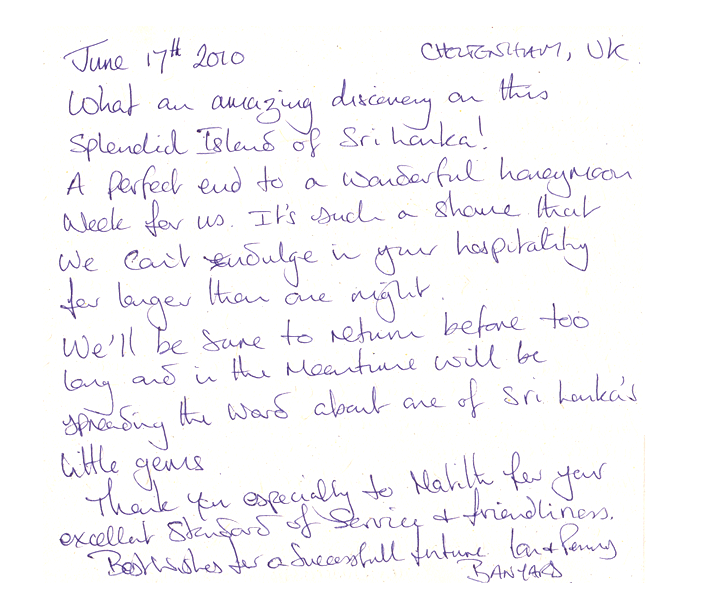 June 17th 2010 CHELTENHAM, UK
What an amazing discovery on this
splendid Island of Sri Lanka!
A perfect end to a wonderful honeymoon
week for us. It's such a shame that
we can't indulge in your hospitality
for longer than one night.
We'll be sure to return before too
long and in the meantime will be
spreading the word about one of Sri Lanka's
little gems
Thank you especially to for your
excellent standard of service & friendliness.
Best wishes for a successfull future Ian & Penny
BANYARD